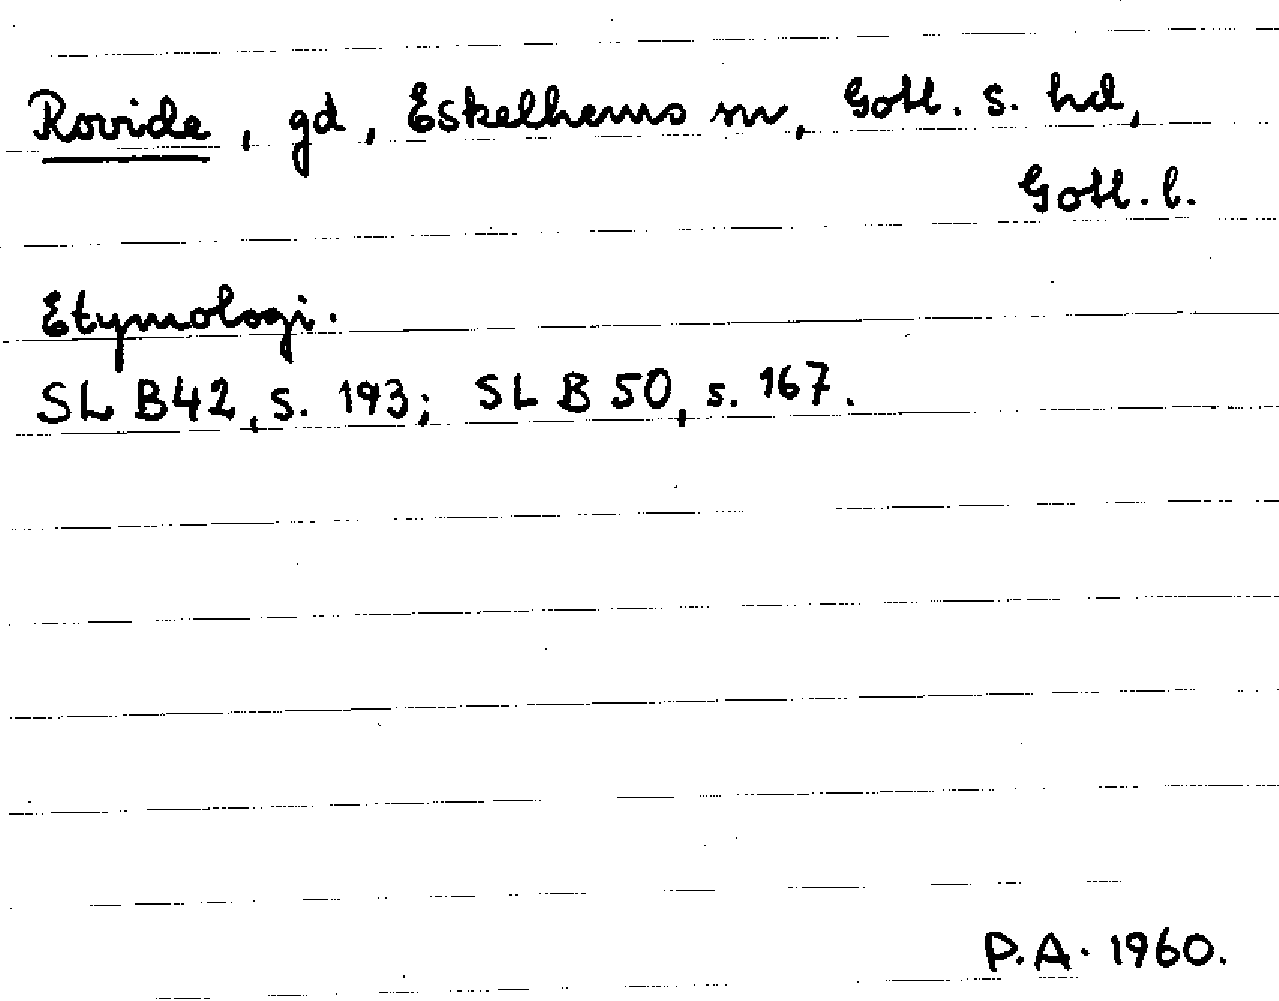 Rovide, gd, Eskelhems sn, Gotl. s. hd,
Gotl. l.
Etymologi.
SL B42, s. 193; SL B 50, s. 167.
P.A. 1960.